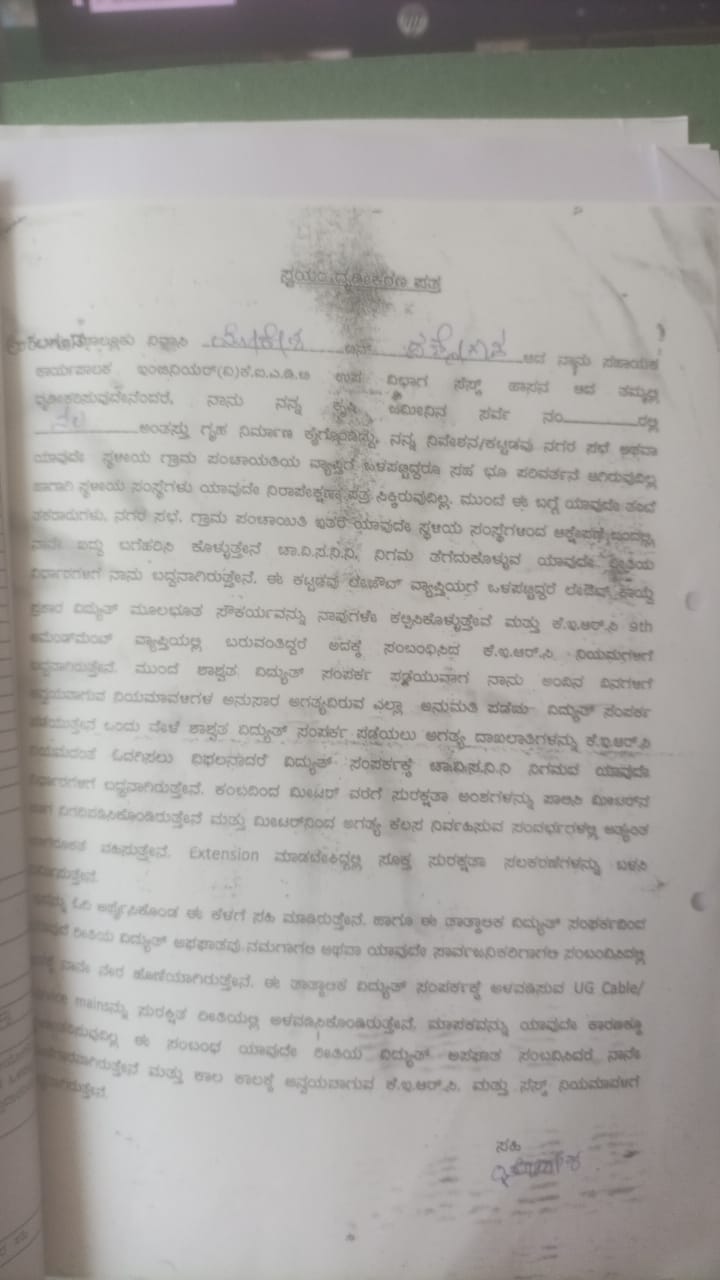 hp
ಸ್ವಯಂ ದೃಢೀಕರಣ ಪತ್ರ
ನಿವಾಸಿ ಬಿನ್ ಆದ ನಾನು ಸಹಾಯಕ
ಕಾರ್ಯಪಾಲಕ ಇಂಜಿನಿಯರ್(ವಿ) ಉಪ ವಿಭಾಗ ಸೆಸ್ಕ್ ಹಾಸನ ಆದ ತಮ್ಮಲ್ಲಿ
ದೃಢೀಕರಿಸುವುದೇನೆಂದರೆ, ನಾನು ನನ್ನ ಕೃಷಿ ಜಮೀನಿನ ಸರ್ವೆ ನಂ ರಲ್ಲಿ
ನೆಲ ಅಂತಸ್ತು ಗೃಹ ನಿರ್ಮಾಣ ಕೈಗೊಂಡಿದ್ದು, ನನ್ನ ನಿವೇಶನ/ಕಟ್ಟಡವು ನಗರ ಸಭೆ ಅಥವಾ
ಯಾವುದೇ ಸ್ಥಳೀಯ ಗ್ರಾಮ ಪಂಚಾಯತಿಯ ವ್ಯಾಪ್ತಿಗೆ ಒಳಪಟ್ಟಿದ್ದರೂ ಸಹ ಭೂ ಪರಿವರ್ತನೆ ಆಗಿರುವುದಿಲ್ಲ
ಹಾಗಾಗಿ ಸ್ಥಳೀಯ ಸಂಸ್ಥೆಗಳು ಯಾವುದೇ ನಿರಾಪೇಕ್ಷಣಾ ಪತ್ರ ಸಿಕ್ಕಿರುವುದಿಲ್ಲ. ಮುಂದೆ ಈ ಬಗ್ಗೆ ಯಾವುದೇ ತಂಟೆ
ತಕರಾರುಗಳು, ನಗರ ಸಭೆ, ಗ್ರಾಮ ಪಂಚಾಯಿತಿ ಇತರೆ ಯಾವುದೇ ಸ್ಥಳೀಯ ಸಂಸ್ಥೆಗಳಿಂದ ಆಕ್ಷೇಪಣೆ ಬಂದಲ್ಲಿ
ನಾನೇ ಖುದ್ದು ಬಗೆಹರಿಸಿ ಕೊಳ್ಳುತ್ತೇನೆ ಚಾ.ವಿ.ಸ.ನಿ.ನಿ, ನಿಗಮ ತೆಗೆದುಕೊಳ್ಳುವ ಯಾವುದೇ ರೀತಿಯ
ನಿರ್ಧಾರಗಳಿಗೆ ನಾನು ಬದ್ಧನಾಗಿರುತ್ತೇನೆ. ಈ ಕಟ್ಟಡವು ಲೇಔಟ್ ವ್ಯಾಪ್ತಿಯಗೆ ಒಳಪಟ್ಟಿದ್ದರೆ ಲೇಔಟ್ ಕಾಯ್ದೆ
ಪ್ರಕಾರ ವಿದ್ಯುತ್ ಮೂಲಭೂತ ಸೌಕರ್ಯವನ್ನು ನಾವುಗಳೇ ಕಲ್ಪಿಸಿಕೊಳ್ಳುತ್ತೇವೆ ಮತ್ತು ಕೆ.ಇ.ಆರ್.ಸಿ 9th
ಅಮೆಂಡ್‌ಮೆಂಟ್ ವ್ಯಾಪ್ತಿಯಲ್ಲಿ ಬರುವಂತಿದ್ದರೆ ಅದಕ್ಕೆ ಸಂಬಂಧಿಸಿದ ಕೆ.ಇ.ಆರ್.ಸಿ ನಿಯಮಗಳಿಗೆ
ಬದ್ಧನಾಗಿರುತ್ತೇನೆ. ಮುಂದೆ ಶಾಶ್ವತ ವಿದ್ಯುತ್ ಸಂಪರ್ಕ ಪಡೆಯುವಾಗ ನಾನು ಅಂದಿನ ದಿನಗಳಿಗೆ
ಅನ್ವಯವಾಗುವ ನಿಯಮಾವಳಿಗಳ ಅನುಸಾರ ಅಗತ್ಯವಿರುವ ಎಲ್ಲಾ ಅನುಮತಿ ಪಡೆದು ವಿದ್ಯುತ್ ಸಂಪರ್ಕ
ಪಡೆಯುತ್ತೇನೆ ಒಂದು ವೇಳೆ ಶಾಶ್ವತ ವಿದ್ಯುತ್ ಸಂಪರ್ಕ ಪಡೆಯಲು ಅಗತ್ಯ ದಾಖಲಾತಿಗಳನ್ನು ಕೆ.ಇ.ಆರ್.ಸಿ
ನಿಯಮದಂತೆ ಒದಗಿಸಲು ವಿಫಲನಾದರೆ ವಿದ್ಯುತ್ ಸಂಪರ್ಕಕ್ಕೆ ಚಾ.ವಿ.ಸ.ನಿ.ನಿ ನಿಗಮದ ಯಾವುದೇ
ನಿರ್ಧಾರಗಳಿಗೆ ಬದ್ಧನಾಗಿರುತ್ತೇನೆ. ಕಂಬದಿಂದ ಮೀಟರ್ ವರೆಗೆ ಸುರಕ್ಷತಾ ಅಂಶಗಳನ್ನು ಪಾಲಿಸಿ ಮೀಟರ್‌ನ
ಜಾಗ ನಿಗದಿಪಡಿಸಿಕೊಂಡಿರುತ್ತೇನೆ ಮತ್ತು ಮೀಟರ್‌ನಿಂದ ಅಗತ್ಯ ಕೆಲಸ ನಿರ್ವಹಿಸುವ ಸಂದರ್ಭಗಳಲ್ಲಿ ಅತ್ಯಂತ
ಜಾಗರೂಕತೆ ವಹಿಸುತ್ತೇನೆ. Extension ಮಾಡಬೇಕಿದ್ದಲ್ಲಿ ಸೂಕ್ತ ಸುರಕ್ಷತಾ ಸಲಕರಣೆಗಳನ್ನು ಬಳಸಿ
ಓದಿ ಅರ್ಥೈಸಿಕೊಂಡ ಈ ಕೆಳಗೆ ಸಹಿ ಮಾಡಿರುತ್ತೇನೆ. ಹಾಗೂ ಈ ತಾತ್ಕಾಲಿಕ ವಿದ್ಯುತ್ ಸಂಪರ್ಕದಿಂದ
ರೀತಿಯ ವಿದ್ಯುತ್ ಅಪಘಾತವು ನಮಗಾಗಲಿ ಅಥವಾ ಯಾವುದೇ ಸಾರ್ವಜನಿಕರಿಗಾಗಲಿ ಸಂಬಂವಿಸಿದಲ್ಲಿ
ನಾನೇ ನೇರ ಹೊಣೆಯಾಗಿರುತ್ತೇನೆ. ಈ ತಾತ್ಕಾಲಿಕ ವಿದ್ಯುತ್ ಸಂಪರ್ಕಕ್ಕೆ ಅಳವಡಿಸುವ UG Cable/
service mainsನ್ನು ಸುರಕ್ಷಿತ ರೀತಿಯಲ್ಲಿ ಅಳವಡಿಸಿಕೊಂಡಿರುತ್ತೇನೆ. ಮಾಪಕವನ್ನು ಯಾವುದೇ ಕಾರಣಕ್ಕೂ
ಈ ಸಂಬಂಧ ಯಾವುದೇ ರೀತಿಯ ವಿದ್ಯುತ್ ಅಪಘಾತ ಸಂಬವಿಸಿದರೆ ನಾನೇ
ಮತ್ತು ಕಾಲ ಕಾಲಕ್ಕೆ ಅನ್ವಯವಾಗುವ ಕೆ.ಇ.ಆರ್.ಸಿ. ಮತ್ತು ಸೆಸ್ಕ್ ನಿಯಮಾವಳಿಗೆ
ಸಹಿ